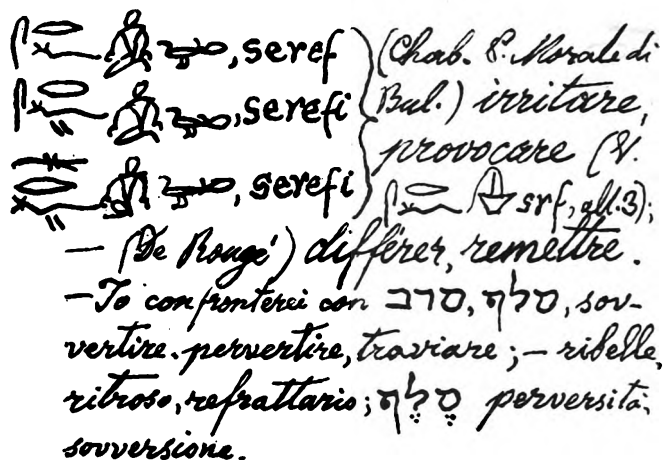 , seref (Chab. P. Morale di
, serefi Bul.) irritare,
provocare (V.
, serefi srf, all.3);
— (De Rougé) différer, remettre.
— Io confronterei con סרב, סלף, sov-
vertire. pervertire, traviare; — ribelle,
ritroso, refrattario; סֶלֶף perversità,
sovversione.